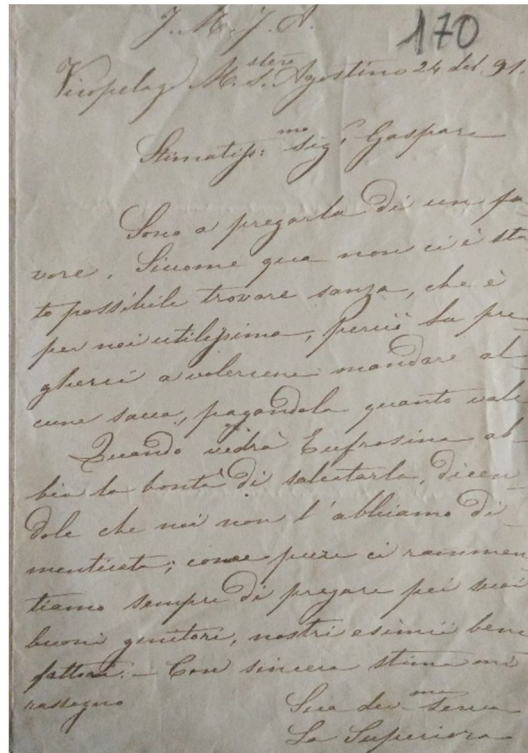 J. M. J. A.
170
Vicopelago M.stero S. Agostino 24 91.
Stimatiss:mo Sigr Gaspare
Sono a pregarla di un fa
vore. Siccome qua non ci è sta
to possibile trovare sansa, che è
per noi utilissima, perciò La pre
gherei a volercene mandare al
cune sacca, pagandola quanto vale
Quando vedrà Eufrosina ab
bia la bontà di salutarla, dicen
dole che noi non l'abbiamo di
menticata; come pure ci rammen
tiamo sempre di pregare pei suoi
buoni genitori, nostri esimii bene
fattori. — Con sincera stima mi
rassegno
Sua dev.ma serva
La Superiora